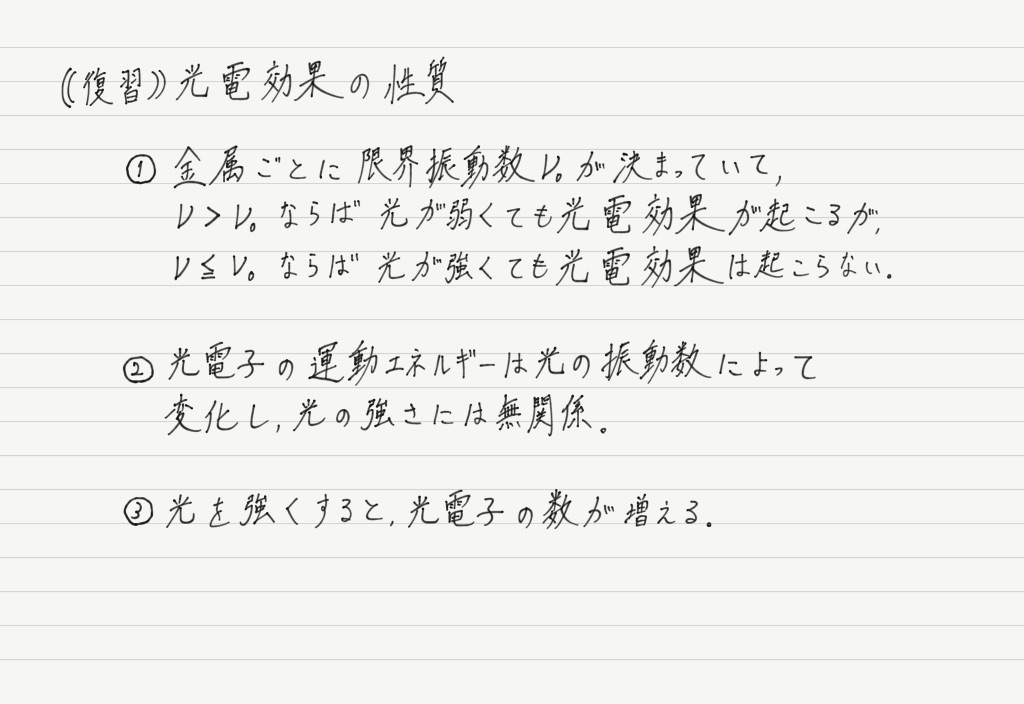 ((復習)) 光電効果の性質
① 金属ごとに限界振動数ν₀が決まっていて,
ν > ν₀ ならば 光が弱くても光電効果が起こるが,
ν ≦ ν₀ ならば 光が強くても光電効果は起こらない.
② 光電子の運動エネルギーは光の振動数によって
変化し, 光の強さには無関係。
③ 光を強くすると, 光電子の数が増える.